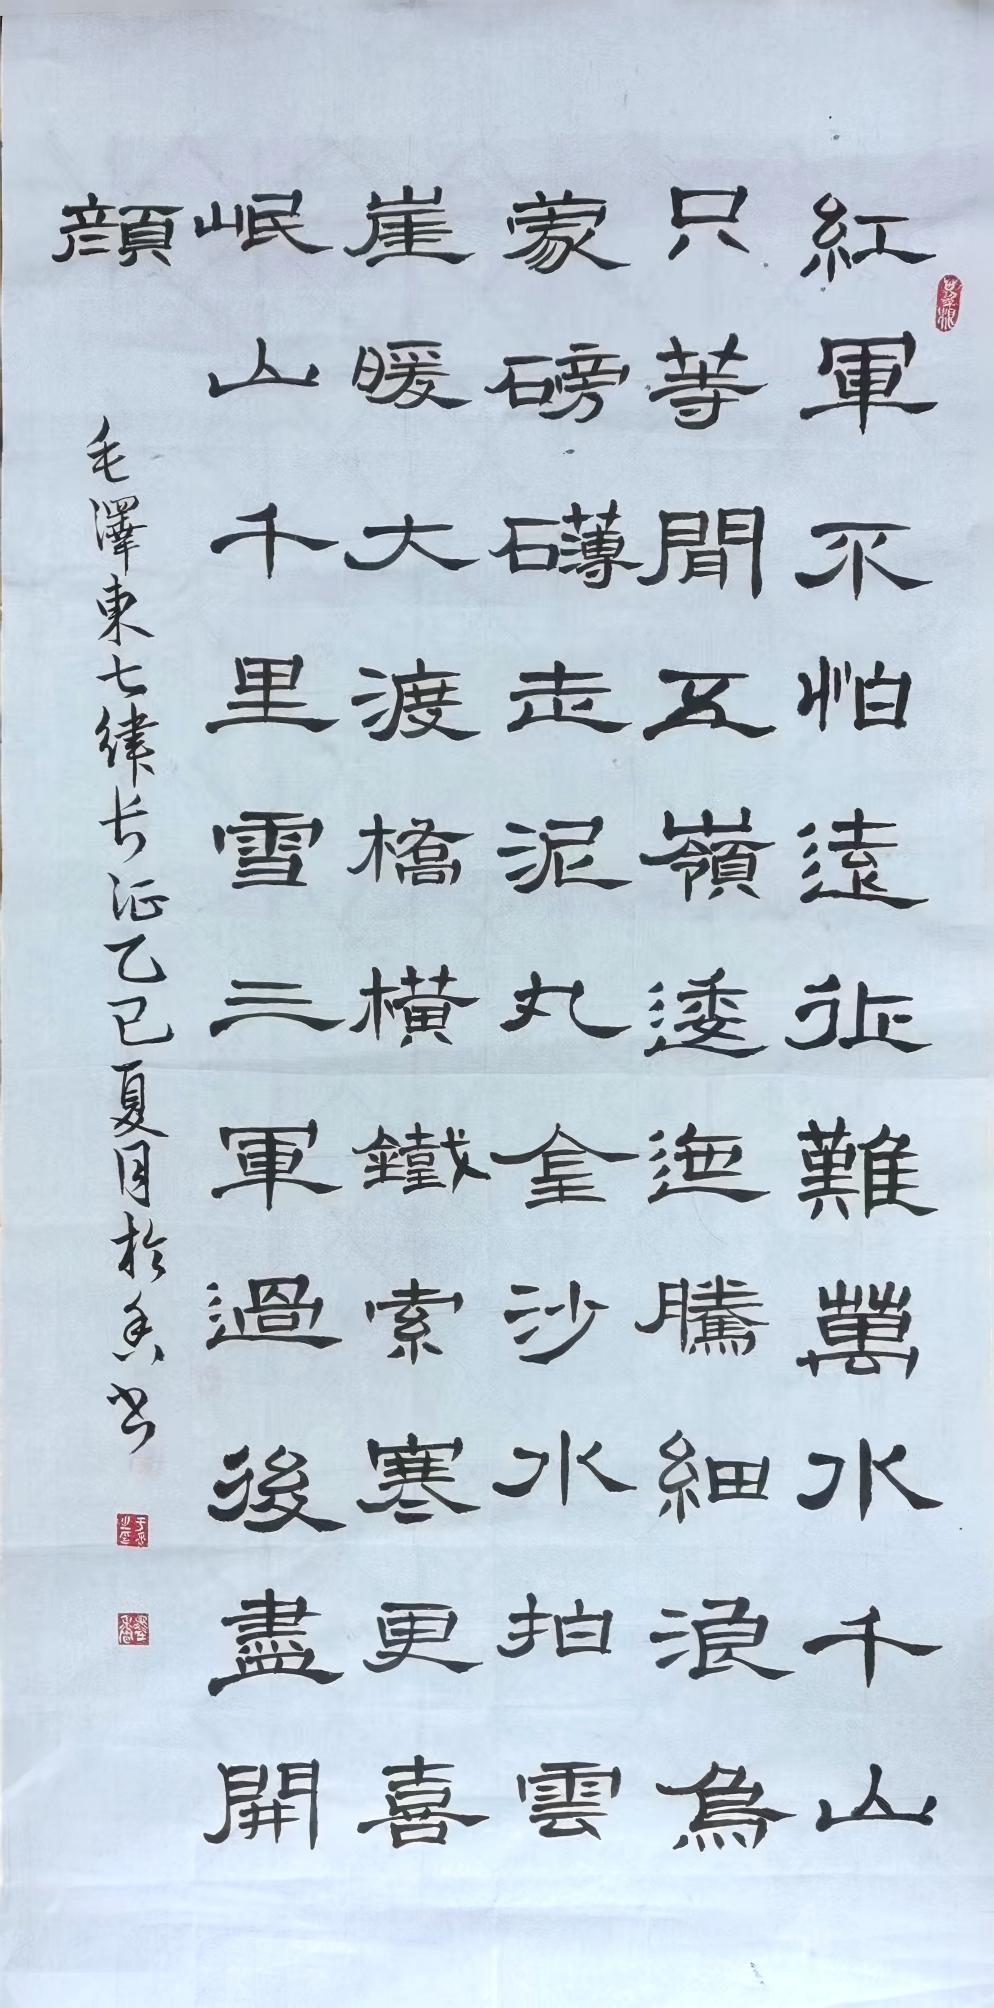 紅軍不怕遠征難萬水千山
只等閒五嶺逶迤騰細浪烏
蒙磅礴走泥丸金沙水拍雲
崖暖大渡橋橫鐵索寒更喜
岷山千里雪三軍過後盡開
顏
毛澤東七律长征乙巳夏月於书